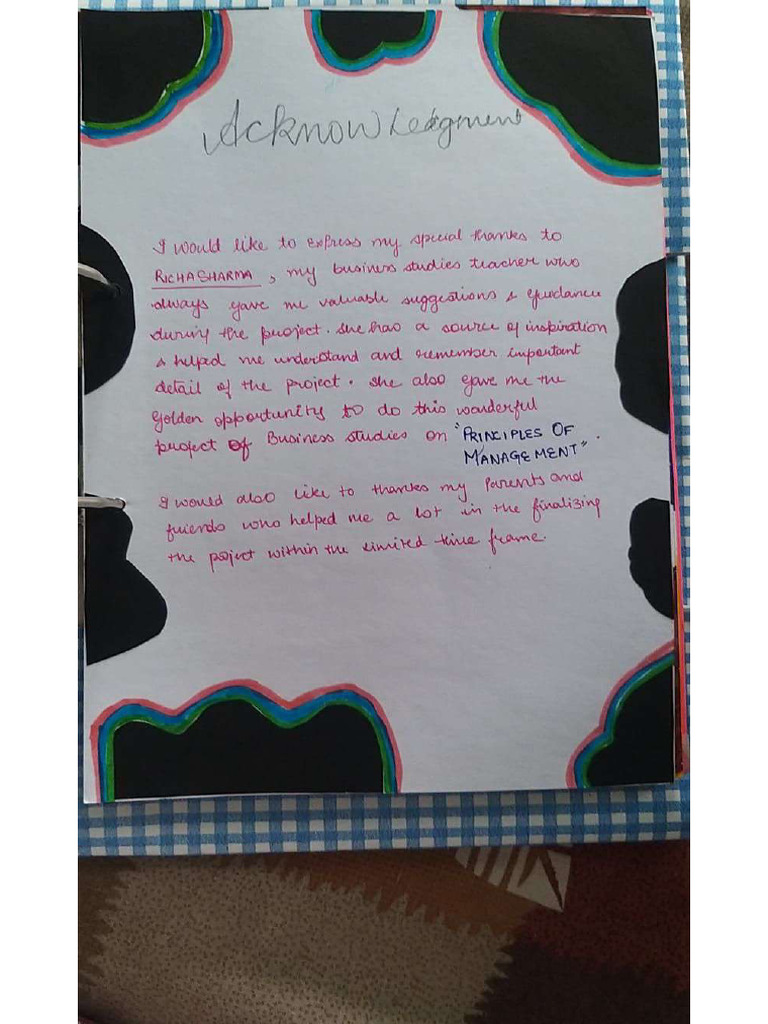 Acknowledgment
I would like to express my special thanks to
RICHA SHARMA, my business studies teacher who
always gave me valuable suggestions & guidance
during the project. She has a source of inspiration
& helped me understand and remember important
detail of the project. She also gave me the
golden opportunity to do this wonderful
project of Business studies on "PRINCIPLES OF
MANAGEMENT".
I would also like to thanks my Parents and
friends who helped me a lot in the finalizing
the project within the limited time frame.